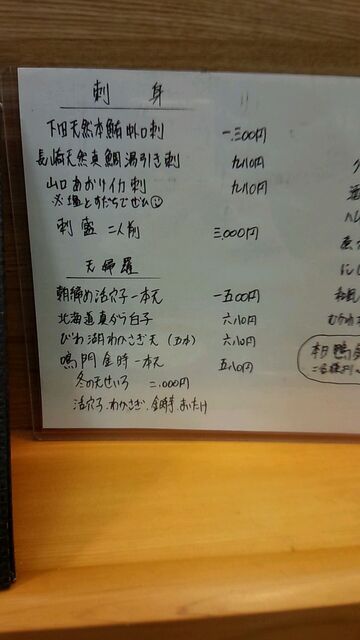 刺身
下田天然本鮪中トロ刺 一、三〇〇円
長崎天然真鯛湯引き刺 九八〇円
山口あおりイカ刺 九八〇円
※塩とすだちでぜひ
刺盛二人前 三,〇〇〇円
天婦羅
朝締め活穴子一本天 一五〇〇円
北海道真だら白子 六八〇円
びわ湖わかさぎ天(五本) 六八〇円
鳴門金時一本天 五八〇円
冬の天せいろ 二、〇〇〇円
活穴子、わかさぎ、金時芋、まいたけ